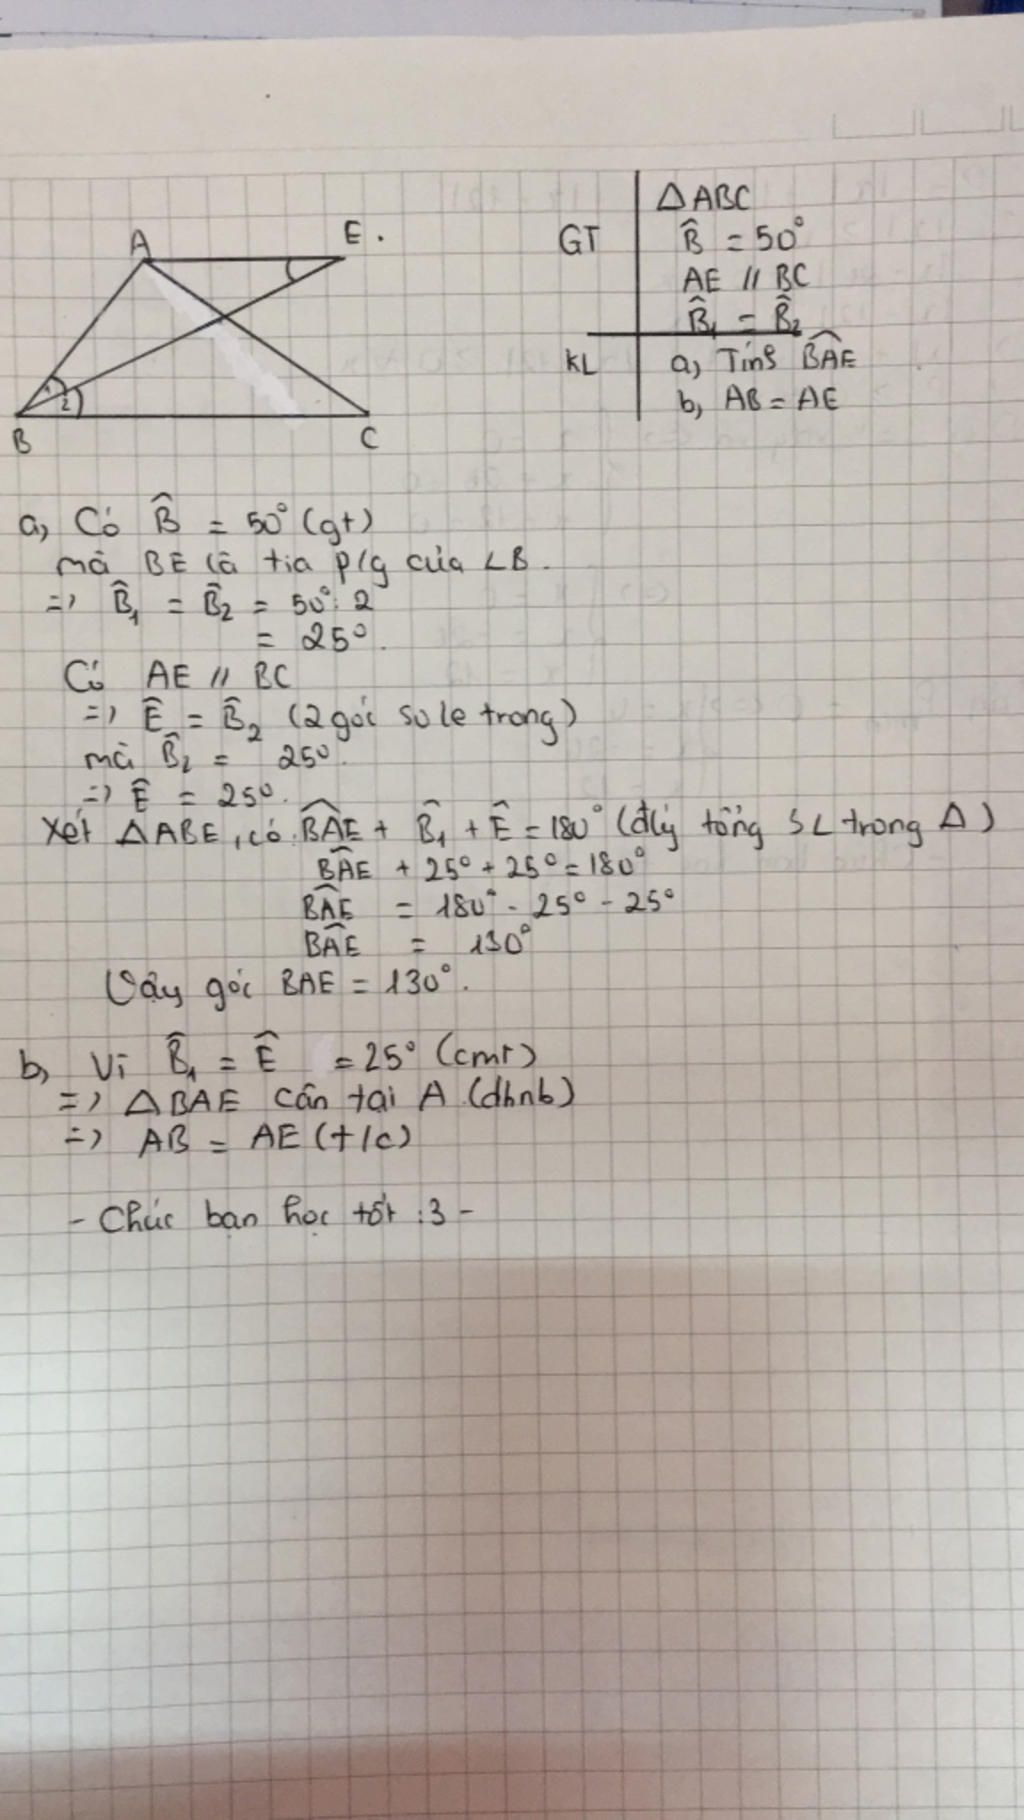 A
E.
1
2
B
C
GT
ΔABC
B̂ = 50°
AE // BC
B̂₁ = B̂₂
KL
a, Tính BAÊ
b, AB = AE
a, Có B̂ = 50° (gt)
mà BE là tia p/g của ∠B.
=> B̂₁ = B̂₂ = 50° : 2
= 25°.
Có AE // BC
=> Ê = B̂₂ (2 góc so le trong)
mà B̂₂ = 25°.
=> Ê = 25°.
Xét ΔABE, có BAÊ + B̂₁ + Ê = 180° (đlý tổng 3∠ trong Δ)
BAÊ + 25° + 25° = 180°
BAÊ = 180° - 25° - 25°
BAÊ = 130°
Vậy góc BAE = 130°.
b, Vì B̂₁ = Ê = 25° (cmt)
=> ΔBAE cân tại A (dhnb)
=> AB = AE (t/c)
- Chúc bạn học tốt :3 -